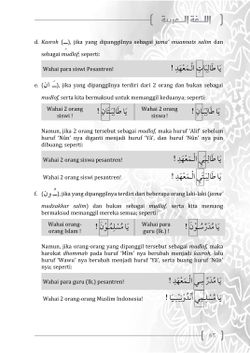 اللغة العربية
d. Kasroh (ـِـ), jika yang dipanggilnya sebagai jama' muannats salim dan
sebagai mudlof; seperti:
Wahai para siswi Pesantren! يَا طَالِبَاتِ الْمَعْهَدِ !
e. (ـَانِ), jika yang dipanggilnya terdiri dari 2 orang dan bukan sebagai
mudlof, serta kita bermaksud untuk memanggil keduanya; seperti:
Wahai 2 orang siswi ! يَا طَالِبَتَانِ ! Wahai 2 orang siswa ! يَا طَالِبَانِ !
Namun, jika 2 orang tersebut sebagai mudlof, maka huruf 'Alif' sebelum
huruf 'Nûn' nya diganti menjadi huruf 'Yâ', dan huruf 'Nûn' nya pun
dibuang; seperti:
Wahai 2 orang siswa pesantren! يَا طَالِبَيِ الْمَعْهَدِ !
Wahai 2 orang siswi pesantren! يَا طَالِبَتَيِ الْمَعْهَدِ !
f. (ـُوْنَ), jika yang dipanggilnya terdiri dari beberapa orang laki-laki (jama'
mudzakkar salim) dan bukan sebagai mudlof, serta kita memang
bermaksud memanggil mereka semua; seperti:
Wahai orang-orang Islam ! يَا مُسْلِمُوْنَ ! Wahai para guru (lk.) ! يَا مُدَرِّسُوْنَ !
Namun, jika orang-orang yang dipanggil tersebut sebagai mudlof, maka
harokat dhommah pada huruf 'Mîm' nya berubah menjadi kasroh, lalu
huruf 'Wawu' nya berubah menjadi huruf 'Yâ', serta buang huruf 'Nûn'
nya; seperti:
Wahai para guru (lk.) pesantren! يَا مُدَرِّسِي الْمَعْهَدِ !
Wahai 2 orang-orang Muslim Indonesia! يَا مُسْلِمِي أَنْدُوْنِيْسِيَا !